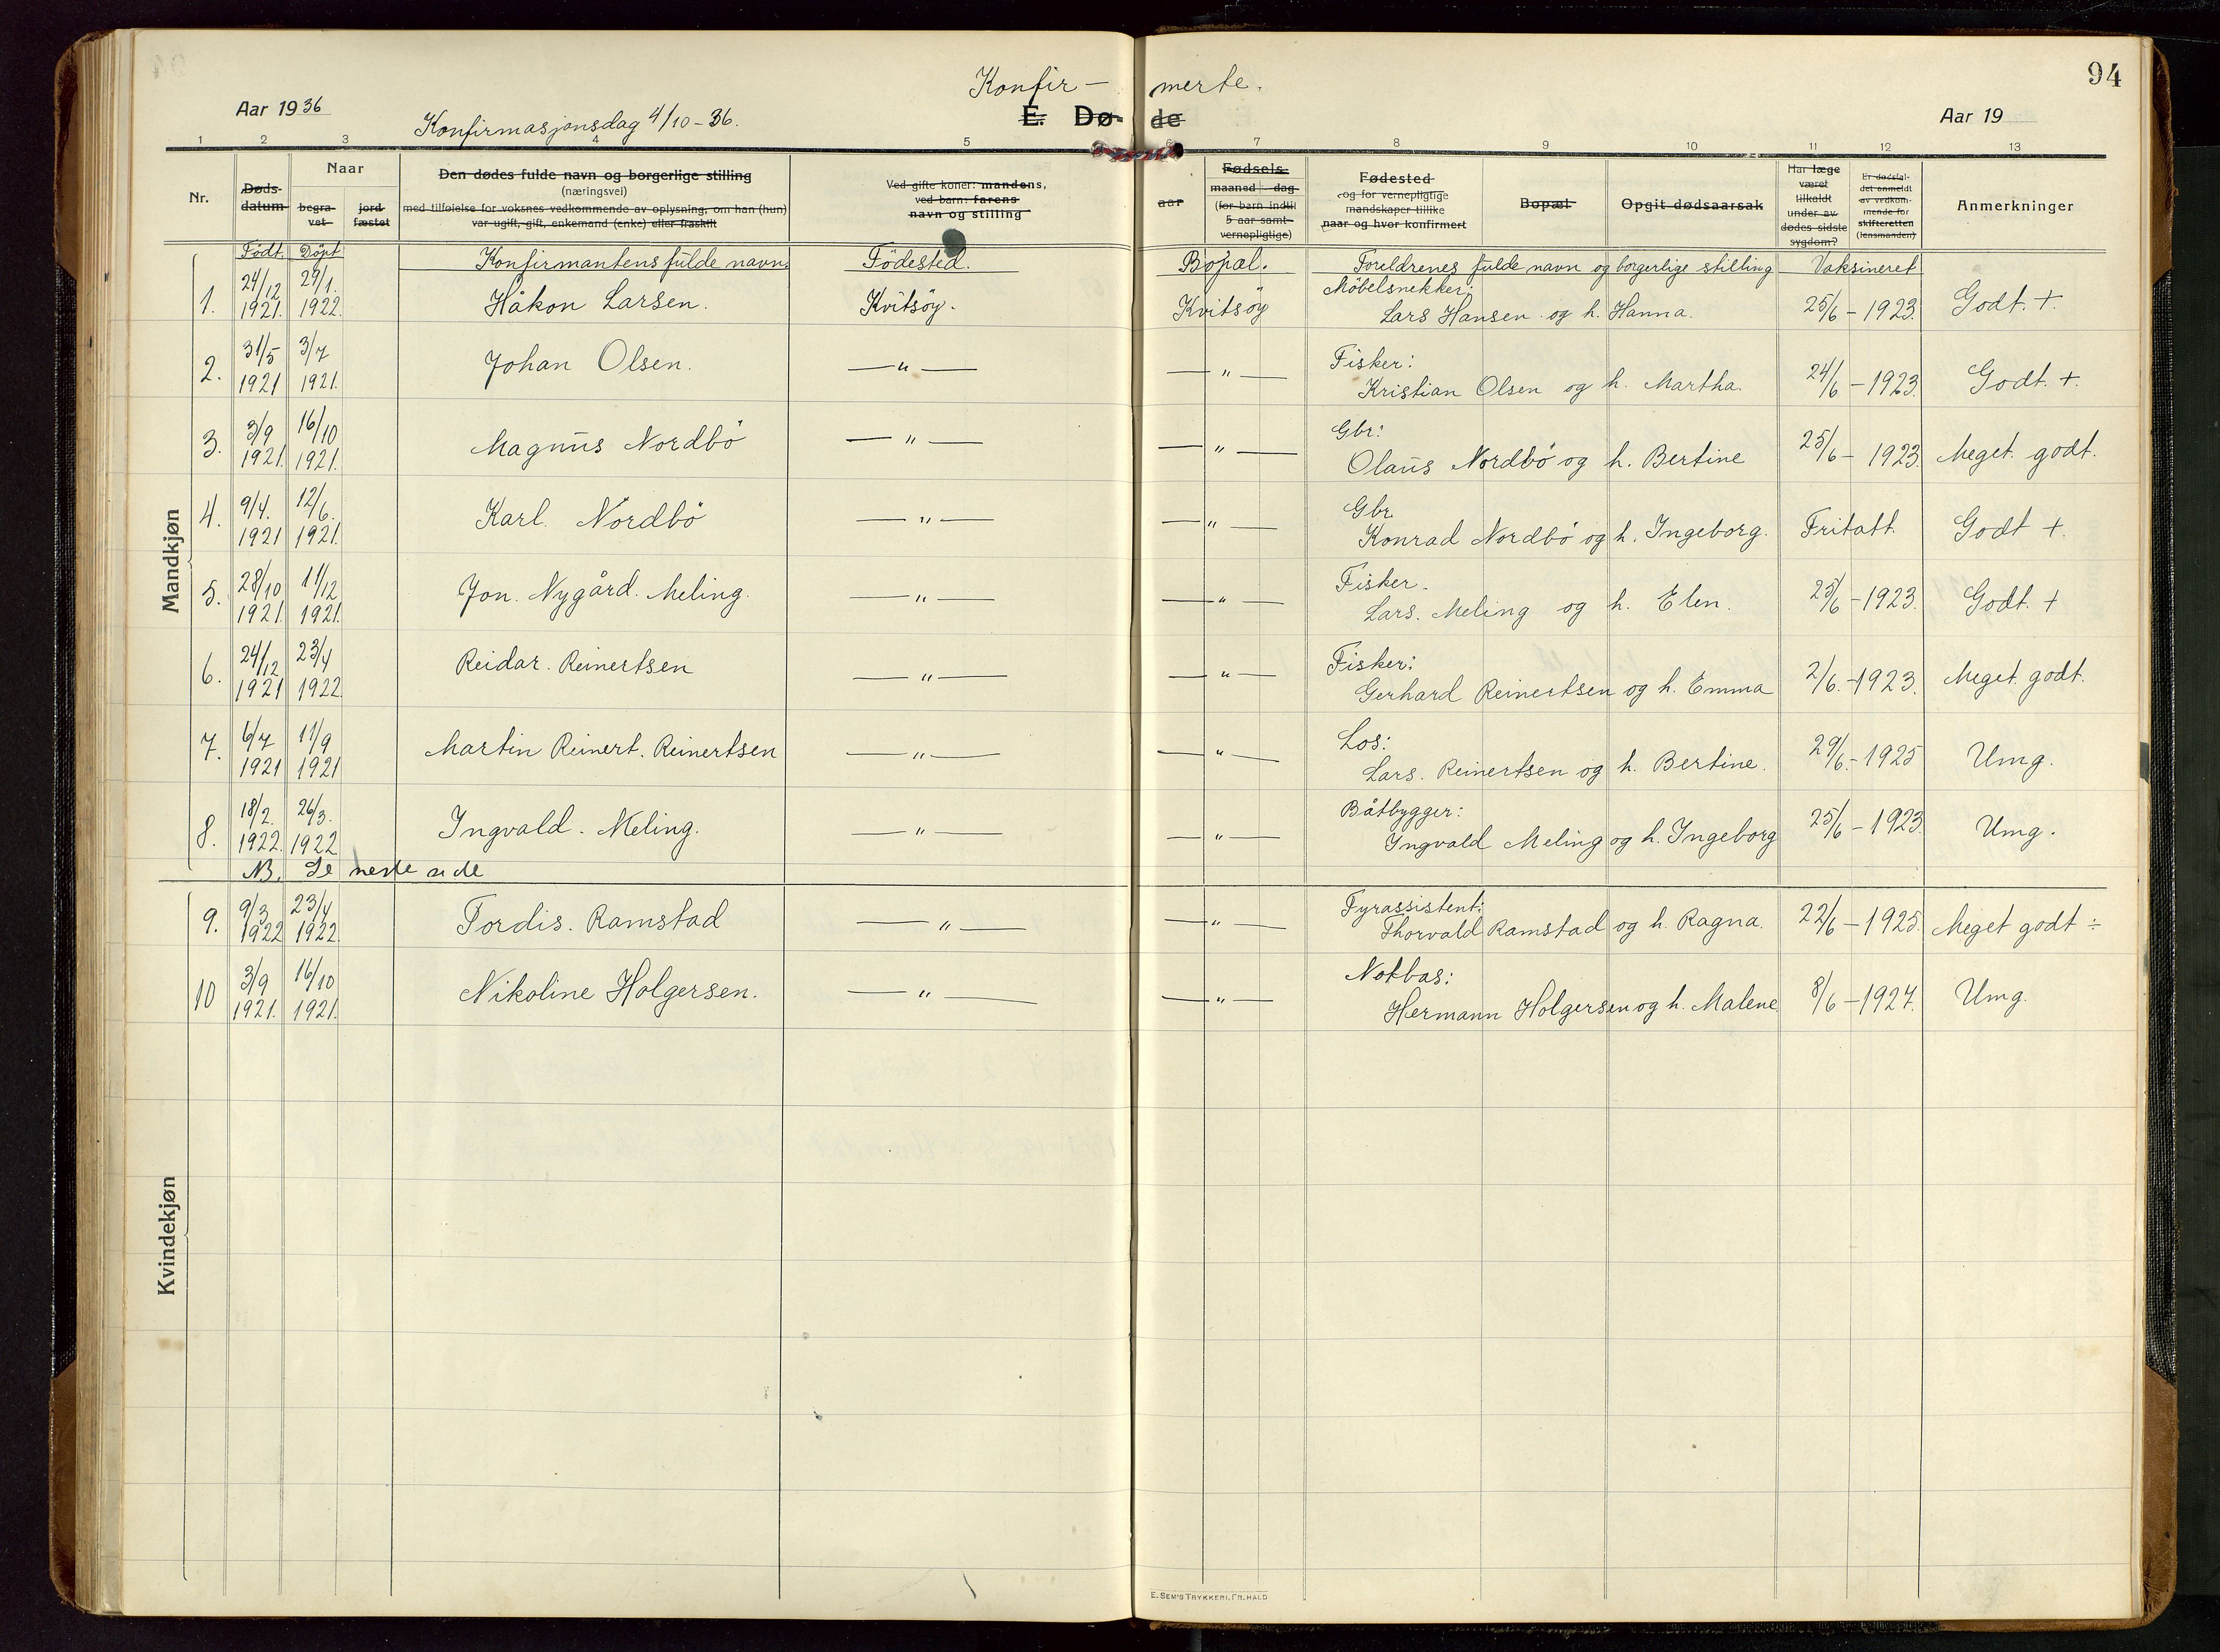 Konfir- merte.
94
Aar 1936
Konfirmasjonsdag 4/10-36.
E. Dø- de
Aar 19
1 2 3 4 5 6 7 8 9 10 11 12 13
Nr.
Døds-
datum
Naar
begra-
vet
jord-
fæstet
Den dødes fulde navn og borgerlige stilling
(næringsvei)
med tilføielse for voksnes vedkommende av oplysning, om han (hun)
var ugift, gift, enkemand (enke) eller fraskilt
Ved gifte koner: mandens,
ved barn: farens
navn og stilling
aar
Fødsels-
maaned dag
(for barn indtil
5 aar samt
vernepligtige)
Fødested
og for vernepligtige
mandskaper tillike
naar og hvor konfirmert
Bopæl
Opgit dødsaarsak
Har læge
været
tilkaldt
under av-
dødes sidste
sygdom?
Er dødsfal-
det anmeldt
av vedkom-
mende for
skifteretten
(lensmanden)
Anmerkninger
Født. Döpt Konfirmantens fulde navn. Födested. Bopæl. Foreldrenes fulde navn og borgerlige stilling Vaksineret
Mandkjøn
1. 24/12 1921. 29/1. 1922. Håkon Larsen. Kvitsöy. Kvitsöy Möbelsnekker: Lars Hansen og h. Hanna. 25/6 - 1923. Godt. +.
2. 31/5 1921 3/7 1921. Johan Olsen. —"— —"— Fisker: Kristian Olsen og h. Martha. 24/6 - 1923. Godt. +.
3. 3/9 1921. 16/10 1921. Magnus Nordbö —"— —"— Gbr: Olaus Nordbö og h. Bertine 25/6 - 1923. Meget godt.
4. 9/4. 1921 12/6. 1921. Karl. Nordbö —"— —"— Gbr. Konrad Nordbö og h. Ingeborg. Fritatt. Godt +.
5. 28/10 1921. 11/12 1921. Jon. Nygård. Meling. —"— —"— Fisker. Lars. Meling og h. Elen. 25/6 - 1923. Godt. +
6. 24/12 1921 23/4 1922. Reidar. Reinertsen —"— —"— Fisker: Gerhard Reinertsen og h. Emma 2/6. - 1923. Meget godt.
7. 6/7 1921 11/9 1921 Martin Reinert. Reinertsen —"— —"— Los: Lars. Reinertsen og h. Bertine. 29/6. - 1925 Umg.
8. 18/2. 1922. 26/3. 1922 Ingvald. Meling. —"— —"— Båtbygger: Ingvald Meling og h. Ingeborg 25/6 - 1923. Umg.
NB. Se neste side
Kvindekjøn
9. 9/3 1922 23/4 1922. Tordis. Ramstad —"— —"— Fyrassistent: Thorvald Ramstad og h. Ragna. 22/6 - 1925. Meget godt ÷
10 3/9 1921. 16/10 1921. Nikoline Holgersen. —"— —"— Notbas: Hermann Holgersen og h. Malene 8/6 - 1927. Umg.
E. SEM'S TRYKKERI, FR.HALD